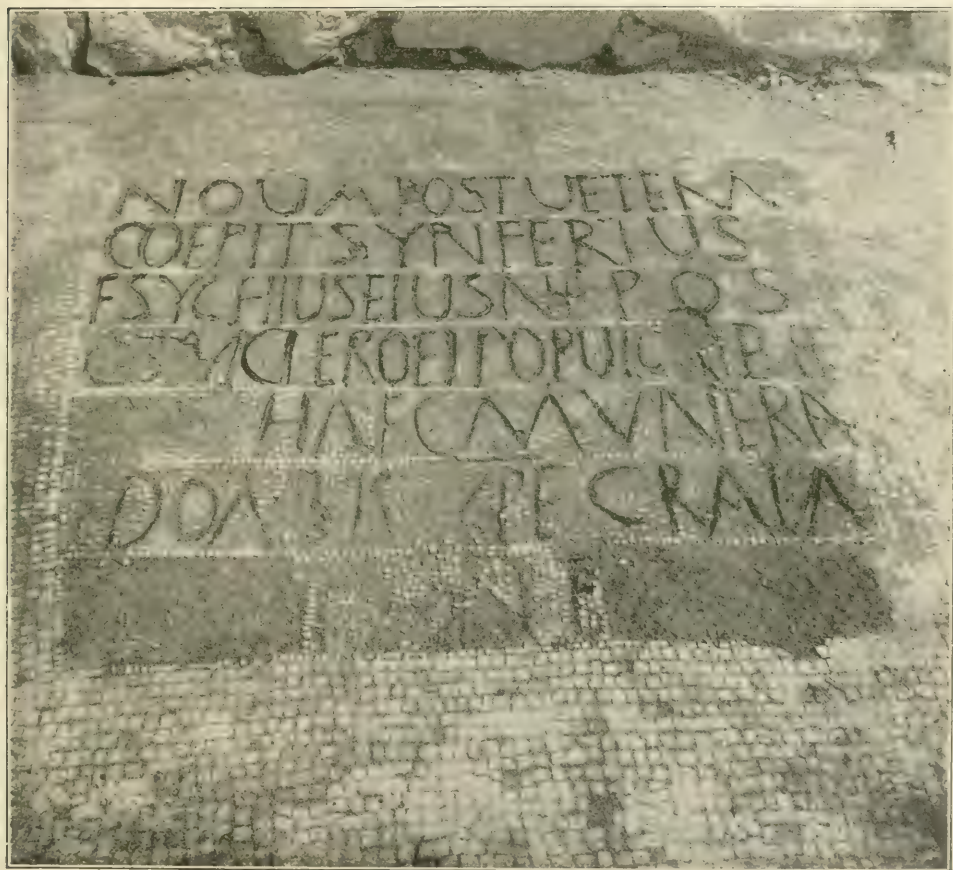 NOUA POST UETERA
COEPIT SYNFERIUS
ESYCHIUS EIUS NEPOS
CUM CLERO ET POPULO
HAEC MVNERA
DOMUS XPE GRATA